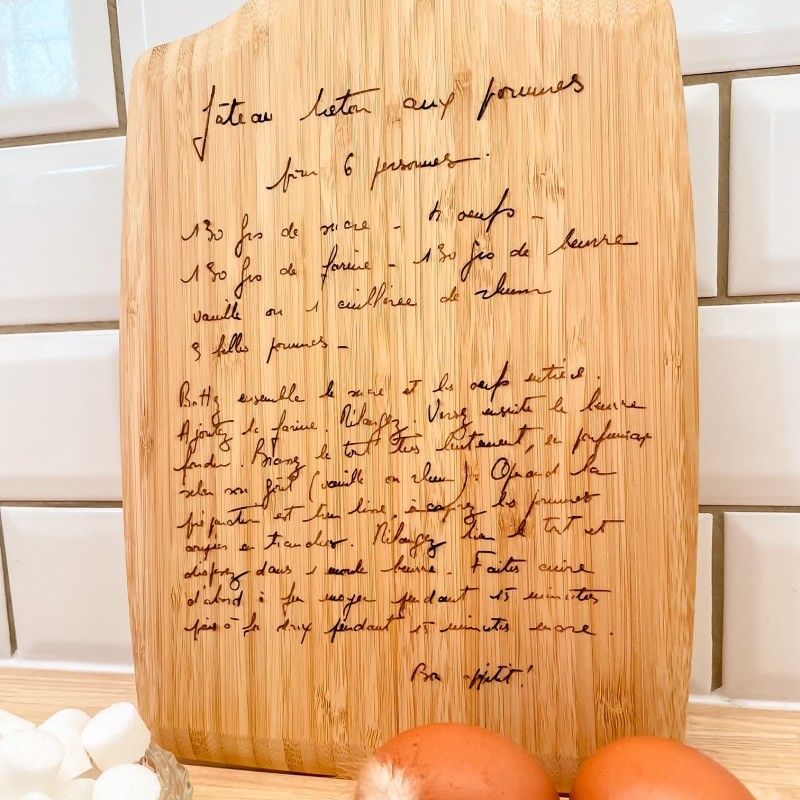 Gâteau breton aux pommes
pour 6 personnes.
130 grs de sucre - oeufs -
130 grs de farine - 130 grs de beurre
vanille ou 1 cuillérée de rhum
3 belles pommes -
Battez ensemble le sucre et les oeufs entiers.
Ajoutez la farine. Mélangez. Versez ensuite le beurre
fondu. Brassez le tout très lentement, en parfumant
selon son goût (vanille ou rhum). Quand la
préparation est bien lisse, incorporez les pommes
coupées en tranches. Mélangez bien le tout et
disposez dans 1 moule beurré. Faites cuire
d'abord à feu moyen pendant 15 minutes
puis à feu doux pendant 15 minutes encore.
Bon appétit!